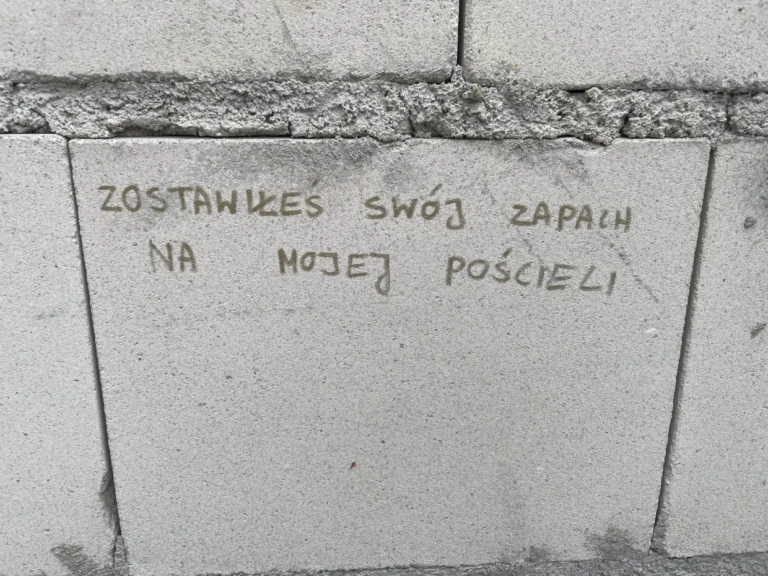 ZOSTAWIŁEŚ SWÓJ ZAPACH
NA MOJEJ POŚCIELI